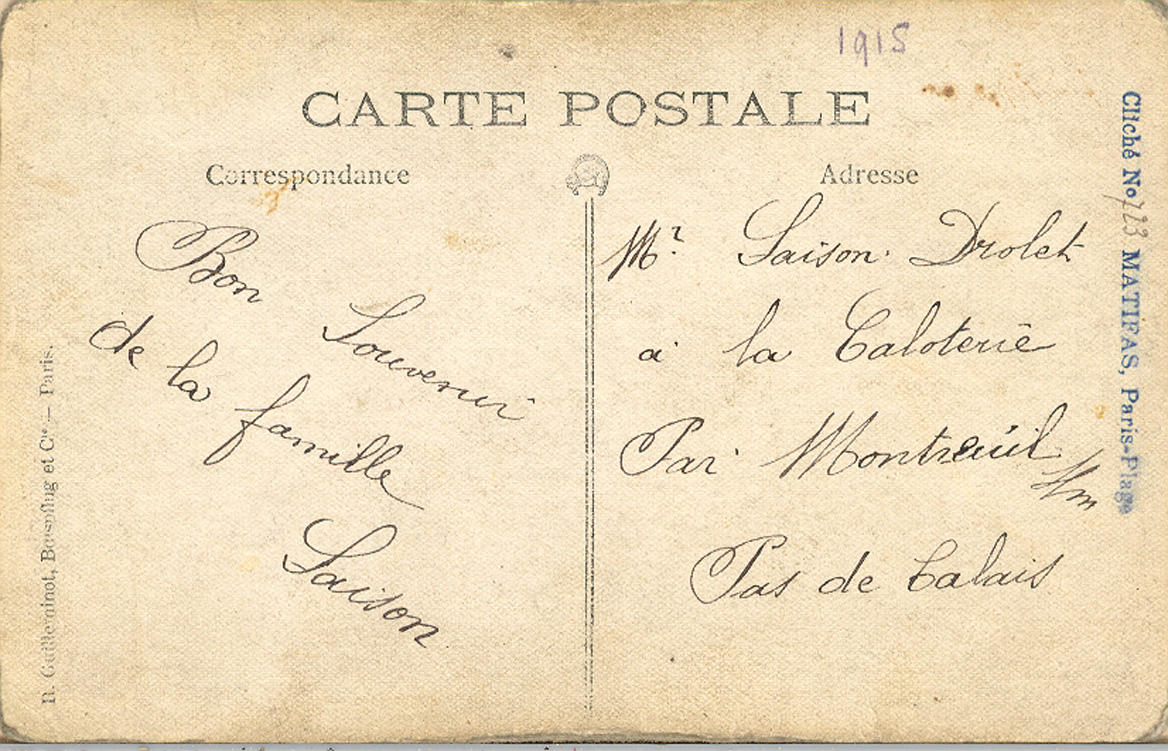 1915
CARTE POSTALE
Correspondance
Adresse
Bon Souvenir
de la famille
Saison
Mr Saison Drolet
à la Caloterie
Par Montreuil s/m
Pas de Calais
Cliché No 723 MATIFAS, Paris-Plage
R. Guilleminot, Bœspflug et Cie – Paris.